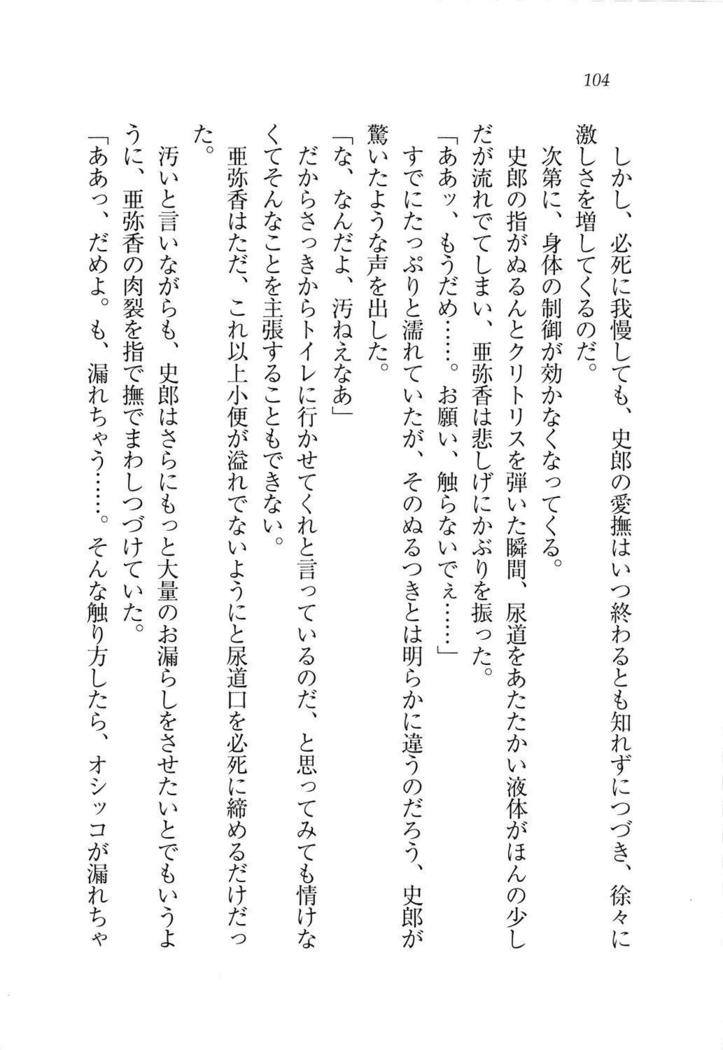 104
しかし、必死に我慢しても、史郎の愛撫はいつ終わるとも知れずにつづき、徐々に
激しさを増してくるのだ。
次第に、身体の制御が効かなくなってくる。
史郎の指がぬるんとクリトリスを弾いた瞬間、尿道をあたたかい液体がほんの少し
だが流れでてしまい、亜弥香は悲しげにかぶりを振った。
「ああッ、もうだめ……。お願い、触らないでぇ……」
すでにたっぷりと濡れていたが、そのぬるつきとは明らかに違うのだろう、史郎が
驚いたような声を出した。
「な、なんだよ、汚ねえなあ」
だからさっきからトイレに行かせてくれと言っているのだ、と思ってみても情けな
くてそんなことを主張することもできない。
亜弥香はただ、これ以上小便が溢れでないようにと尿道口を必死に締めるだけだっ
た。
汚いと言いながらも、史郎はさらにもっと大量のお漏らしをさせたいとでもいうよ
うに、亜弥香の肉裂を指で撫でまわしつづけていた。
「ああっ、だめよ。も、漏れちゃう……。そんな触り方したら、オシッコが漏れちゃ